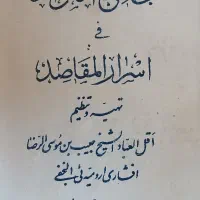 في
اسرار المقاصد
تهیه و تنظیم
أقل العباد الشيخ حبيب بن موسى الرضا
افشاری ارومیه ئی النجفی